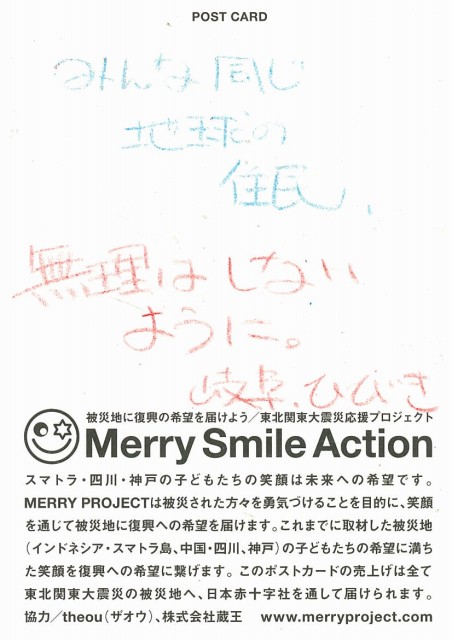 POST CARD
みんな同じ
地球の
住民、
無理はしない
ように。
岐阜.ひびき
被災地に復興の希望を届けよう／東北関東大震災応援プロジェクト
Merry Smile Action
スマトラ・四川・神戸の子どもたちの笑顔は未来への希望です。
MERRY PROJECTは被災された方々を勇気づけることを目的に、笑顔
を通じて被災地に復興への希望を届けます。これまでに取材した被災地
（インドネシア・スマトラ島、中国・四川、神戸）の子どもたちの希望に満ち
た笑顔を復興への希望に繋げます。このポストカードの売上げは全て
東北関東大震災の被災地へ、日本赤十字社を通して届けられます。
協力／theou（ザオウ）、株式会社蔵王　www.merryproject.com